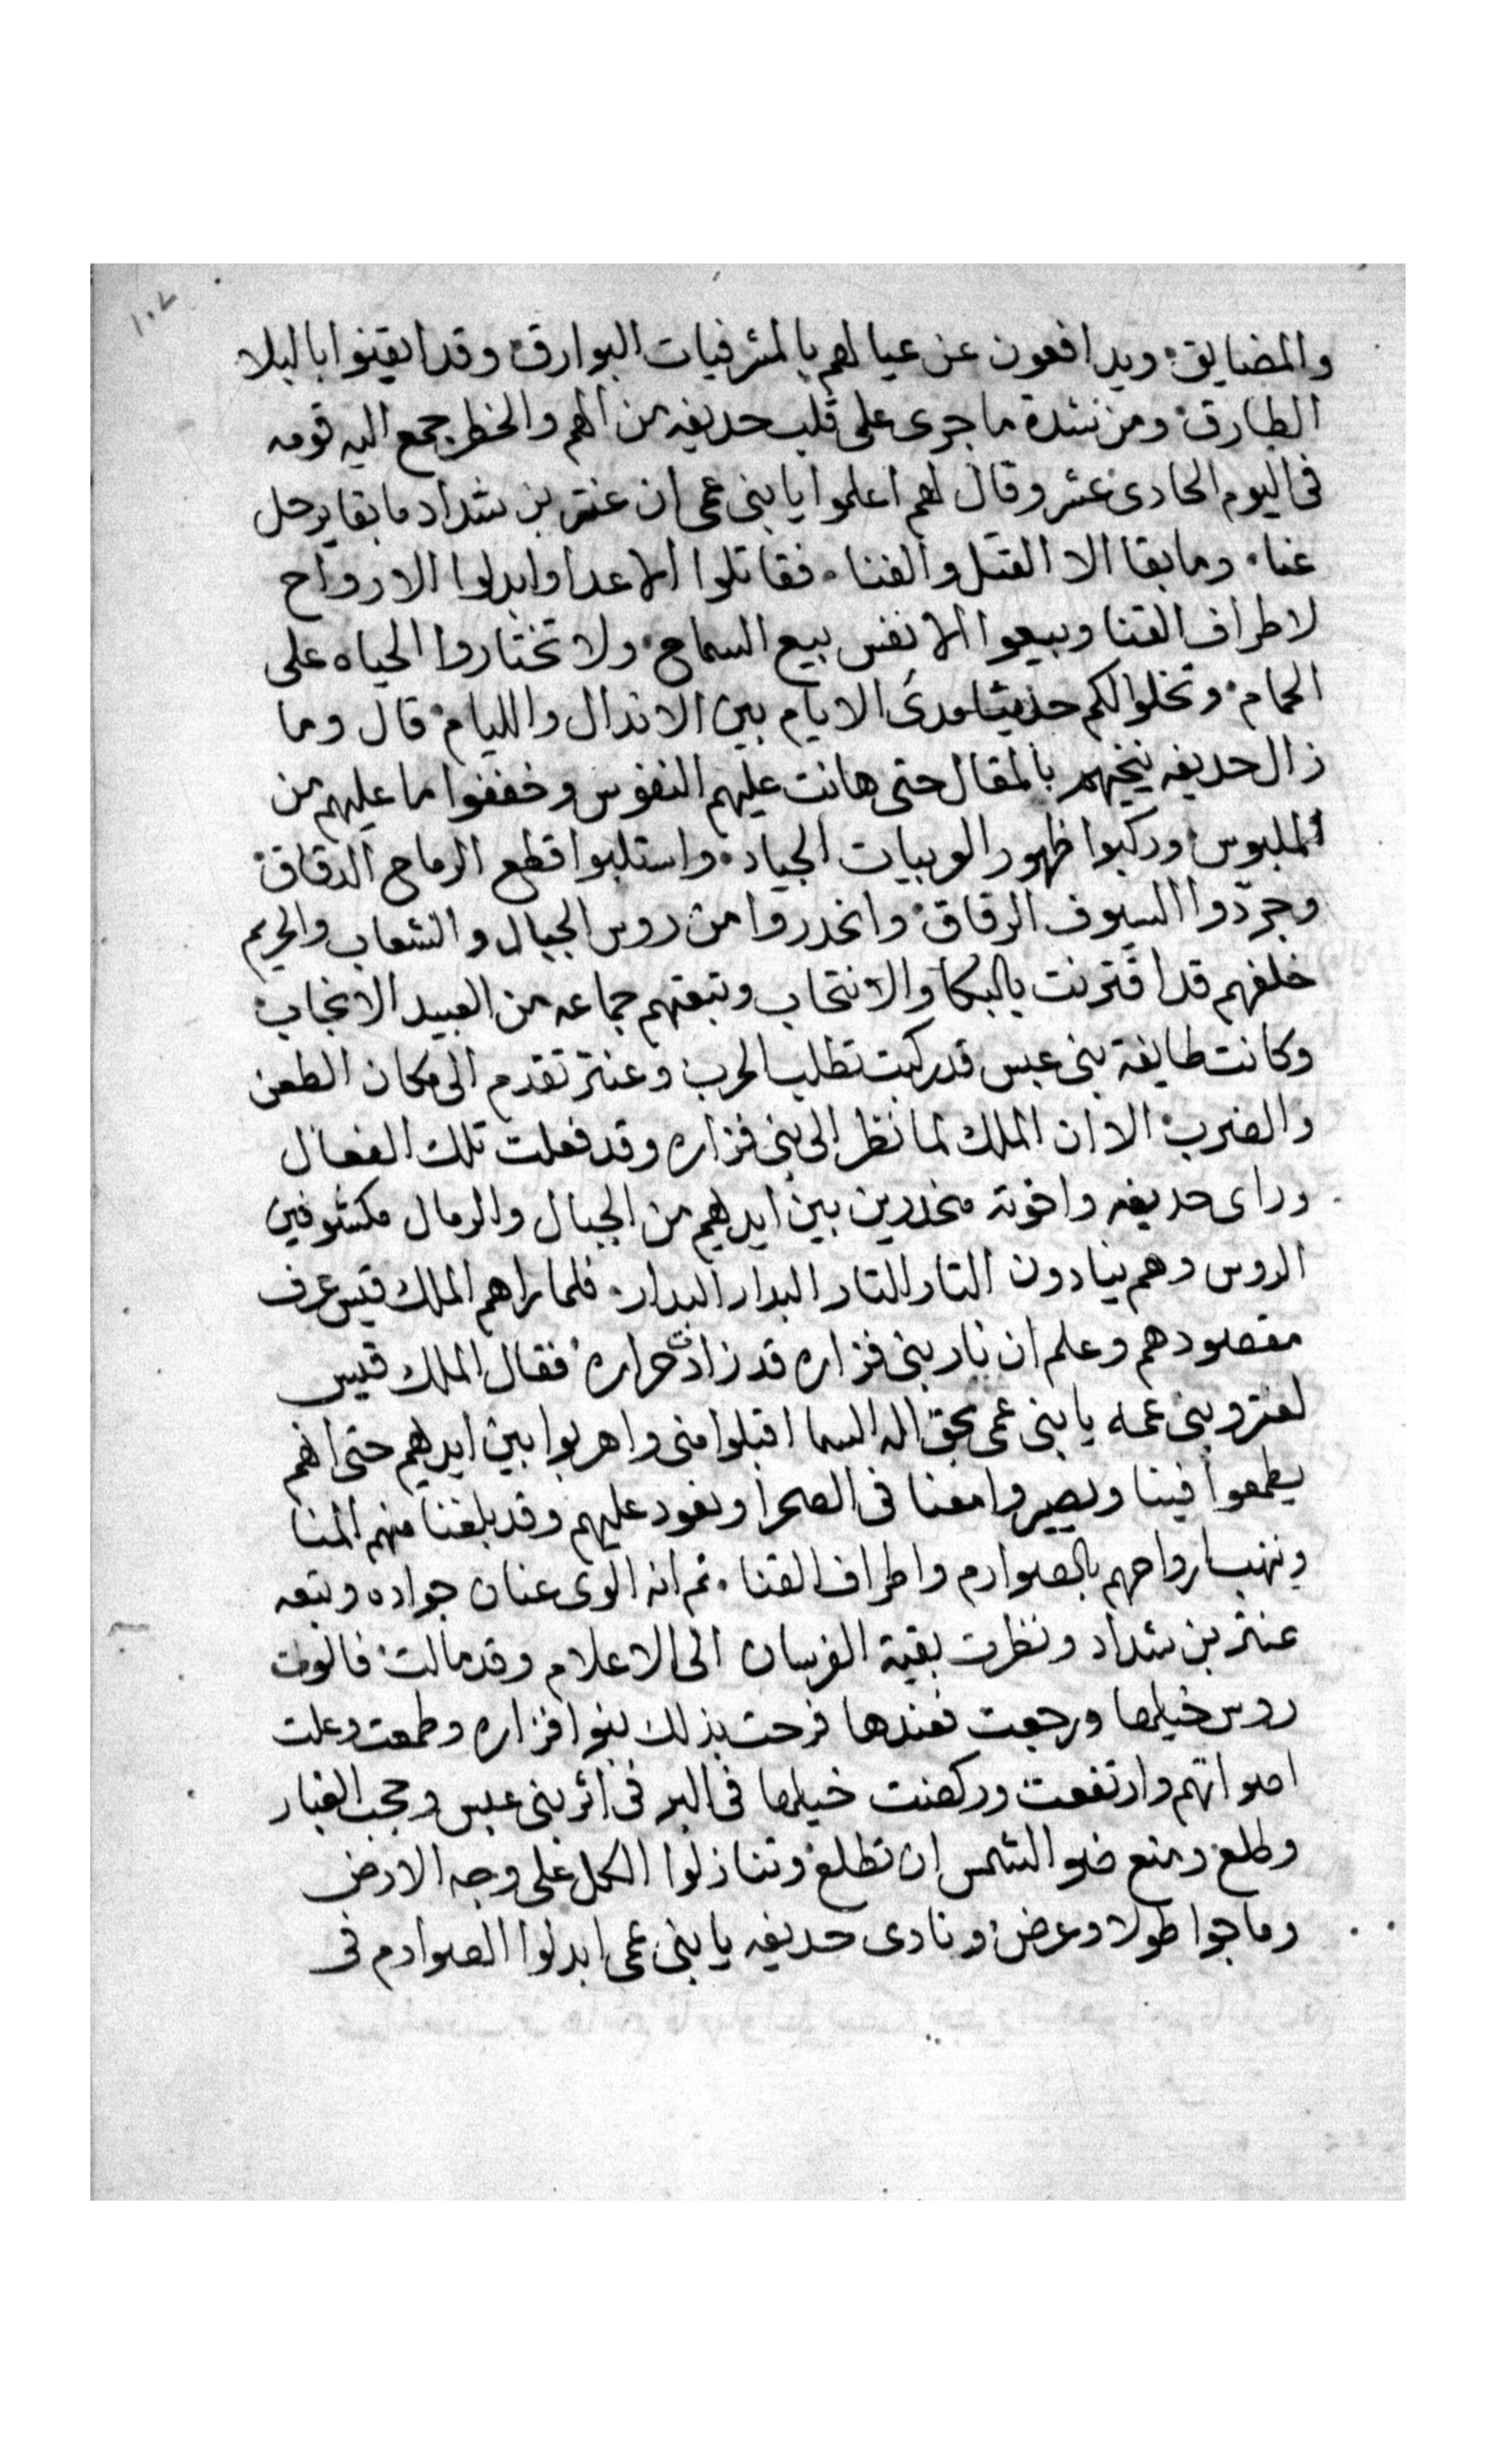 ١٠٧
والمضايق ويدافعون عن عيالهم بالمشرفيات البوارق وقد ايقنوا بالبلا
الطارق ومن شدة ما جرى على قلب حديفه من الهم والخطر جمع اليه قومه
فى اليوم الحادى عشر وقال لهم اعلموا يا بنى عمى ان عنتر بن شداد ما بقا يرحل
عنا وما بقا الا القتل والفنا فقاتلوا الاعدا وابدلوا الارواح
لاطراف القنا وبيعوا الانفس بيع السماح ولا تختاروا الحياه على
الحمام وتخلوا لكم حديثا مدى الايام بين الاندال والليام قال وما
زال حديفه ينخيهم بالمقال حتى هانت عليهم النفوس وخففوا ما عليهم من
الملبوس وركبوا ظهور الجياد واستلبوا قطع الرماح الدقاق
وجردوا السيوف الرقاق وانحدروا من روس الجبال والشعاب والحريم
خلفهم قد اقترنت بالبكا والانتحاب وتبعتهم جماعه من العبيد الانجاب
وكانت طايفة بنى عبس قد ركبت تطلب الحرب وعنتر تقدم الى مكان الطعن
والضرب الا ان الملك لما نظر الى بنى فزاره وقد فعلت تلك الفعال
وراى حديفه واخوته منحدرين بين ايديهم من الجبال والرمال مكشوفين
الروس وهم ينادون التار التار البدار البدار فلما راهم الملك قيس عرف
مقصودهم وعلم ان نار بنى فزاره قد زادت حراره فقال الملك قيس
لعنتر وبنى عمه يا بنى عمى بحق اله السما اقبلوا منى واهربوا بين ايديهم حتى انهم
يطمعوا فينا ويصيروا معنا فى الصحرا ونعود عليهم وقد بلغنا منهم المنا
وننهب ارواحهم بالصوارم واطراف القنا تم انه الوى عنان جواده وتبعه
عنتر بن شداد ونظرت بقية الفرسان الى الاعلام وقد مالت فالوت
روس خيلها ورجعت فعندها فرحت بذلك بنوا فزاره وطمعت وعلت
اصواتهم وارتفعت وركضت خيلها فى البر فى اثر بنى عبس وحجب الغبار
وطلع ومنع ضو الشمس ان تطلع وتنازلوا الكل على وجه الارض
وماجوا طولا وعرض ونادى حديفه يا بنى عمى ابدلوا الصوارم فى